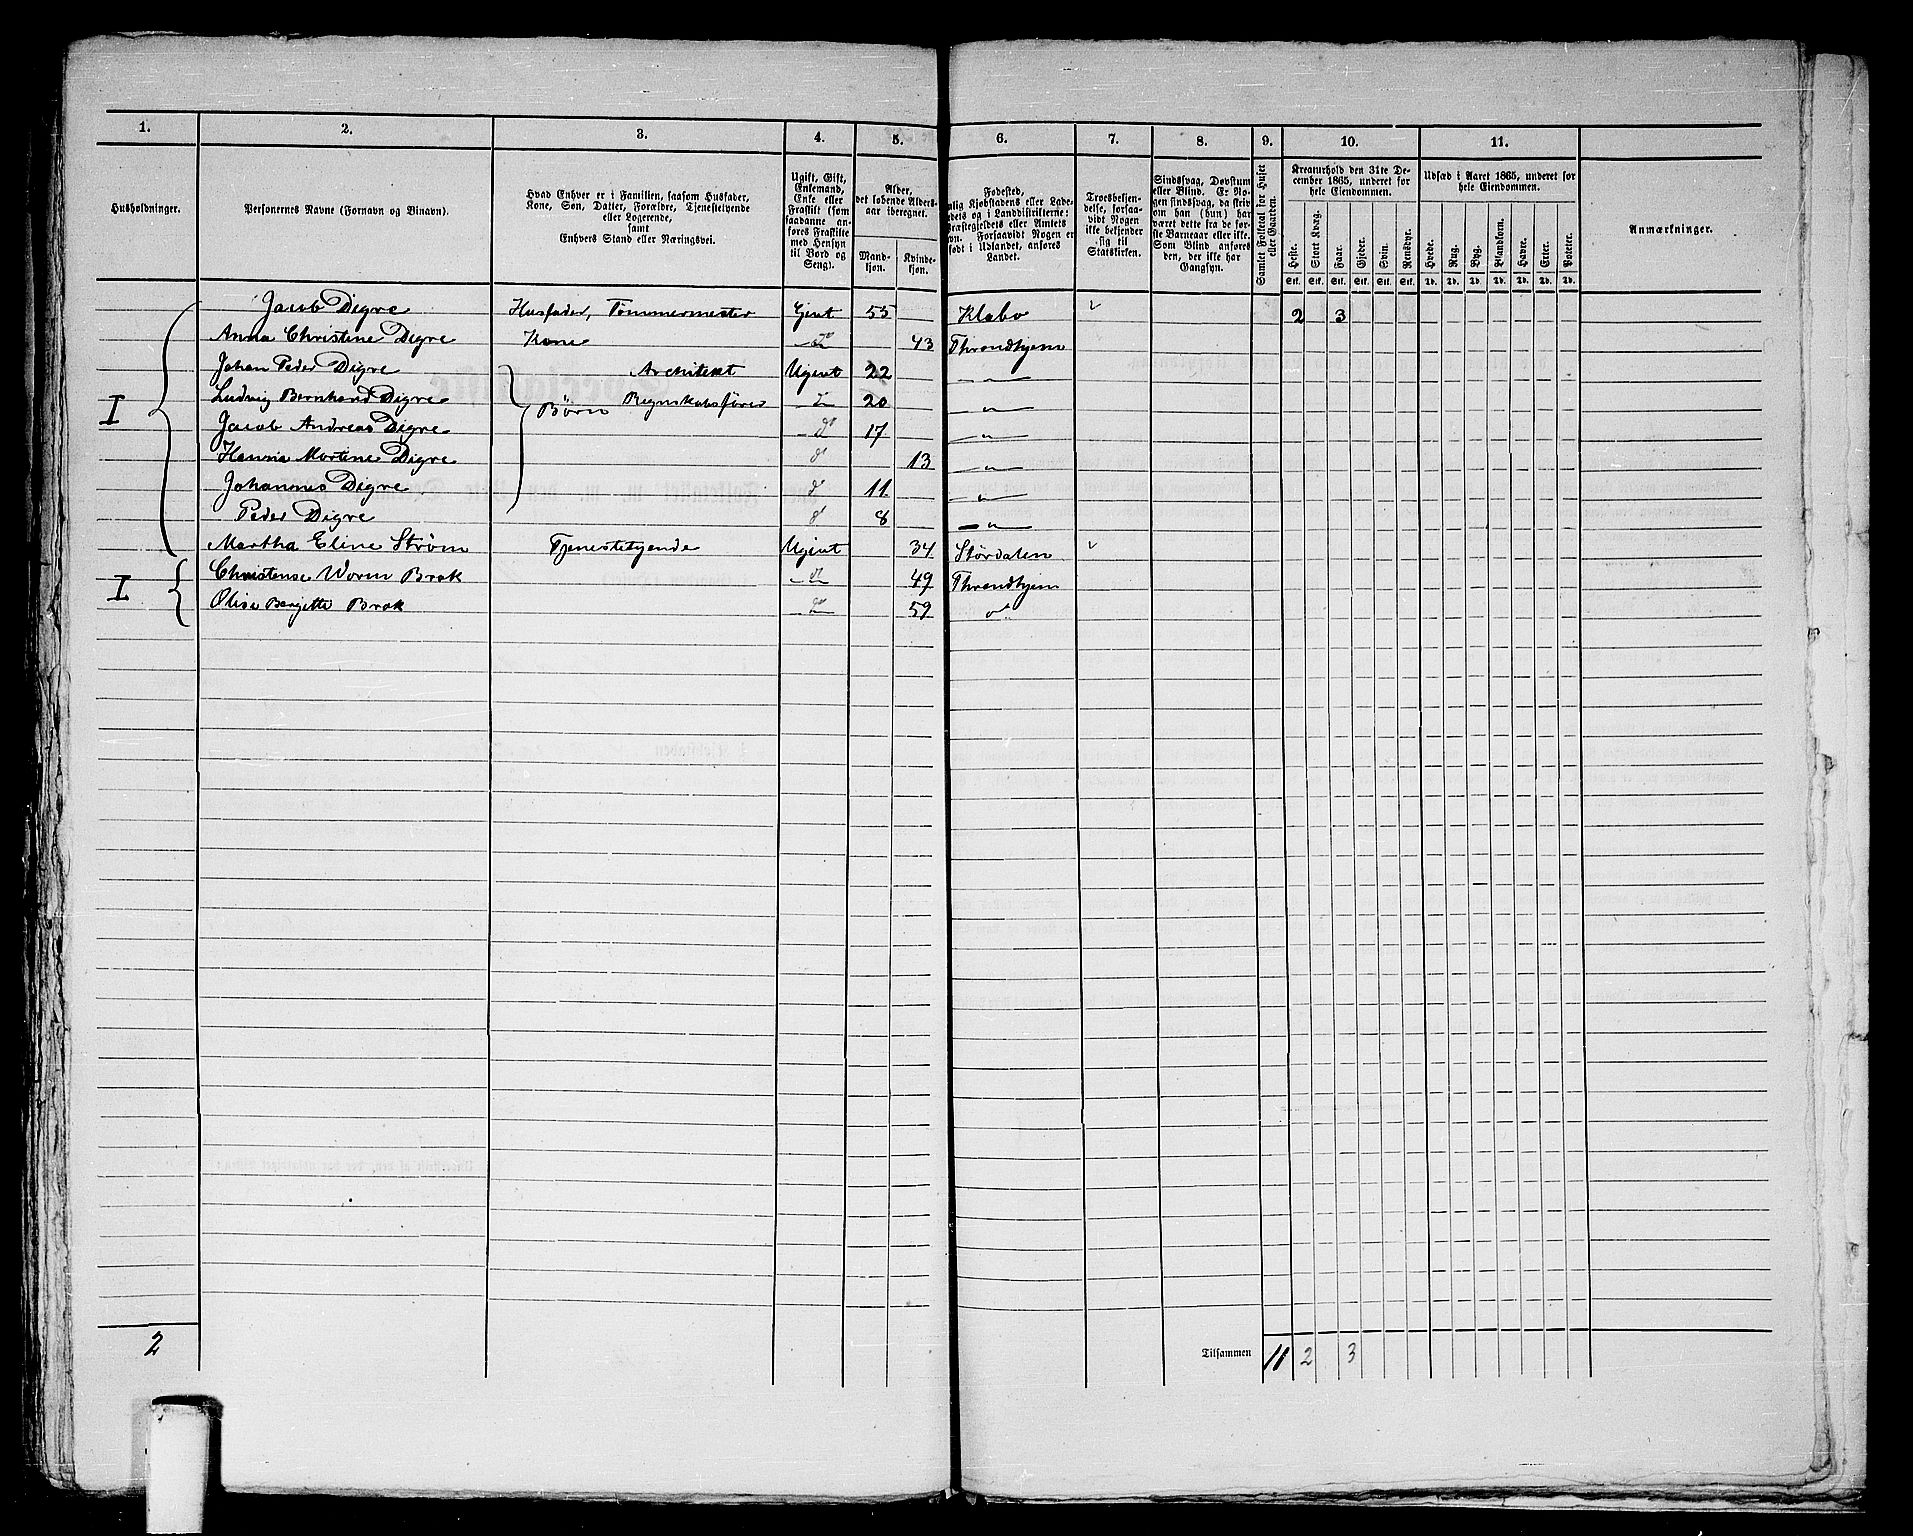 1. 2. 3. 4. 5. 6. 7. 8. 9. 10. 11.
Husholdninger.
Personernes Navne (Fornavn og Tilnavn).
Hvad Enhver er i Familien, saasom Husfader,
Kone, Søn, Datter, Forældre, Tjenestetyende
eller Logerende,
samt
Enhvers Stand eller Næringsvei.
Ugift, Gift,
Enkemand,
Enke eller
Fraskilt (som
saadanne an-
føres Fraskilte
med Hensyn
til Bord og
Seng).
Alder,
det løbende Alders-
aar iberegnet.
Mand-
kjøn.
Kvinde-
kjøn.
Fødested,
nlig Kjøbstadens eller Lade-
dets og i Landdistrikterne:
ræstegjeldets eller Amtets
vn. Forsaavidt Nogen er
født i Udlandet, anføres
Landet.
Troesbekjen-
delse, forsaa-
vidt Nogen
ikke bekjender
sig til
Statskirken.
Sindssvag, Døvstum
eller Blind. Er No-
gen sindssvag, da skriv
om han (hun) har
været dette fra de før-
ste Barneaar eller ikke.
Som Blind anføres
den, der ikke har
Gangsyn.
Samlet Folketal for Huset
eller Gaarden.
Kreaturhold den 31te De-
cember 1865, underet for
hele Eiendommen.
Heste. Stort Kvæg. Faar. Gjeder. Svin. Rensdyr.
Stk. Stk. Stk. Stk. Stk. Stk.
Udsæd i Aaret 1865, underet for
hele Eiendommen.
Hvede. Rug. Byg. Blandkorn. Havre. Erter. Poteter.
Td. Td. Td. Td. Td. Td. Td.
Anmærkninger.
I
Jacob Digre Husfader, Tømmermester Givt 55 Klæbo 2 3
Anna Christine Digre Kone do 43 Throndhjem
Johan Peder Digre Børn Architekt Ugivt 22 — " —
Ludvig Bernhard Digre Regnskabsfører do 20 — " —
Jacob Andreas Digre do 17 — " —
Hanna Martine Digre do 13 — " —
Johannes Digre do 11 — " —
Peder Digre do 8 — " —
Martha Eline Strøm Tjenestetyende Ugivt 34 Størdalen
I
Christense Worm Brok do 49 Throndhjem
Olise Bergitte Brok do 59 do
2 Tilsammen 11 2 3